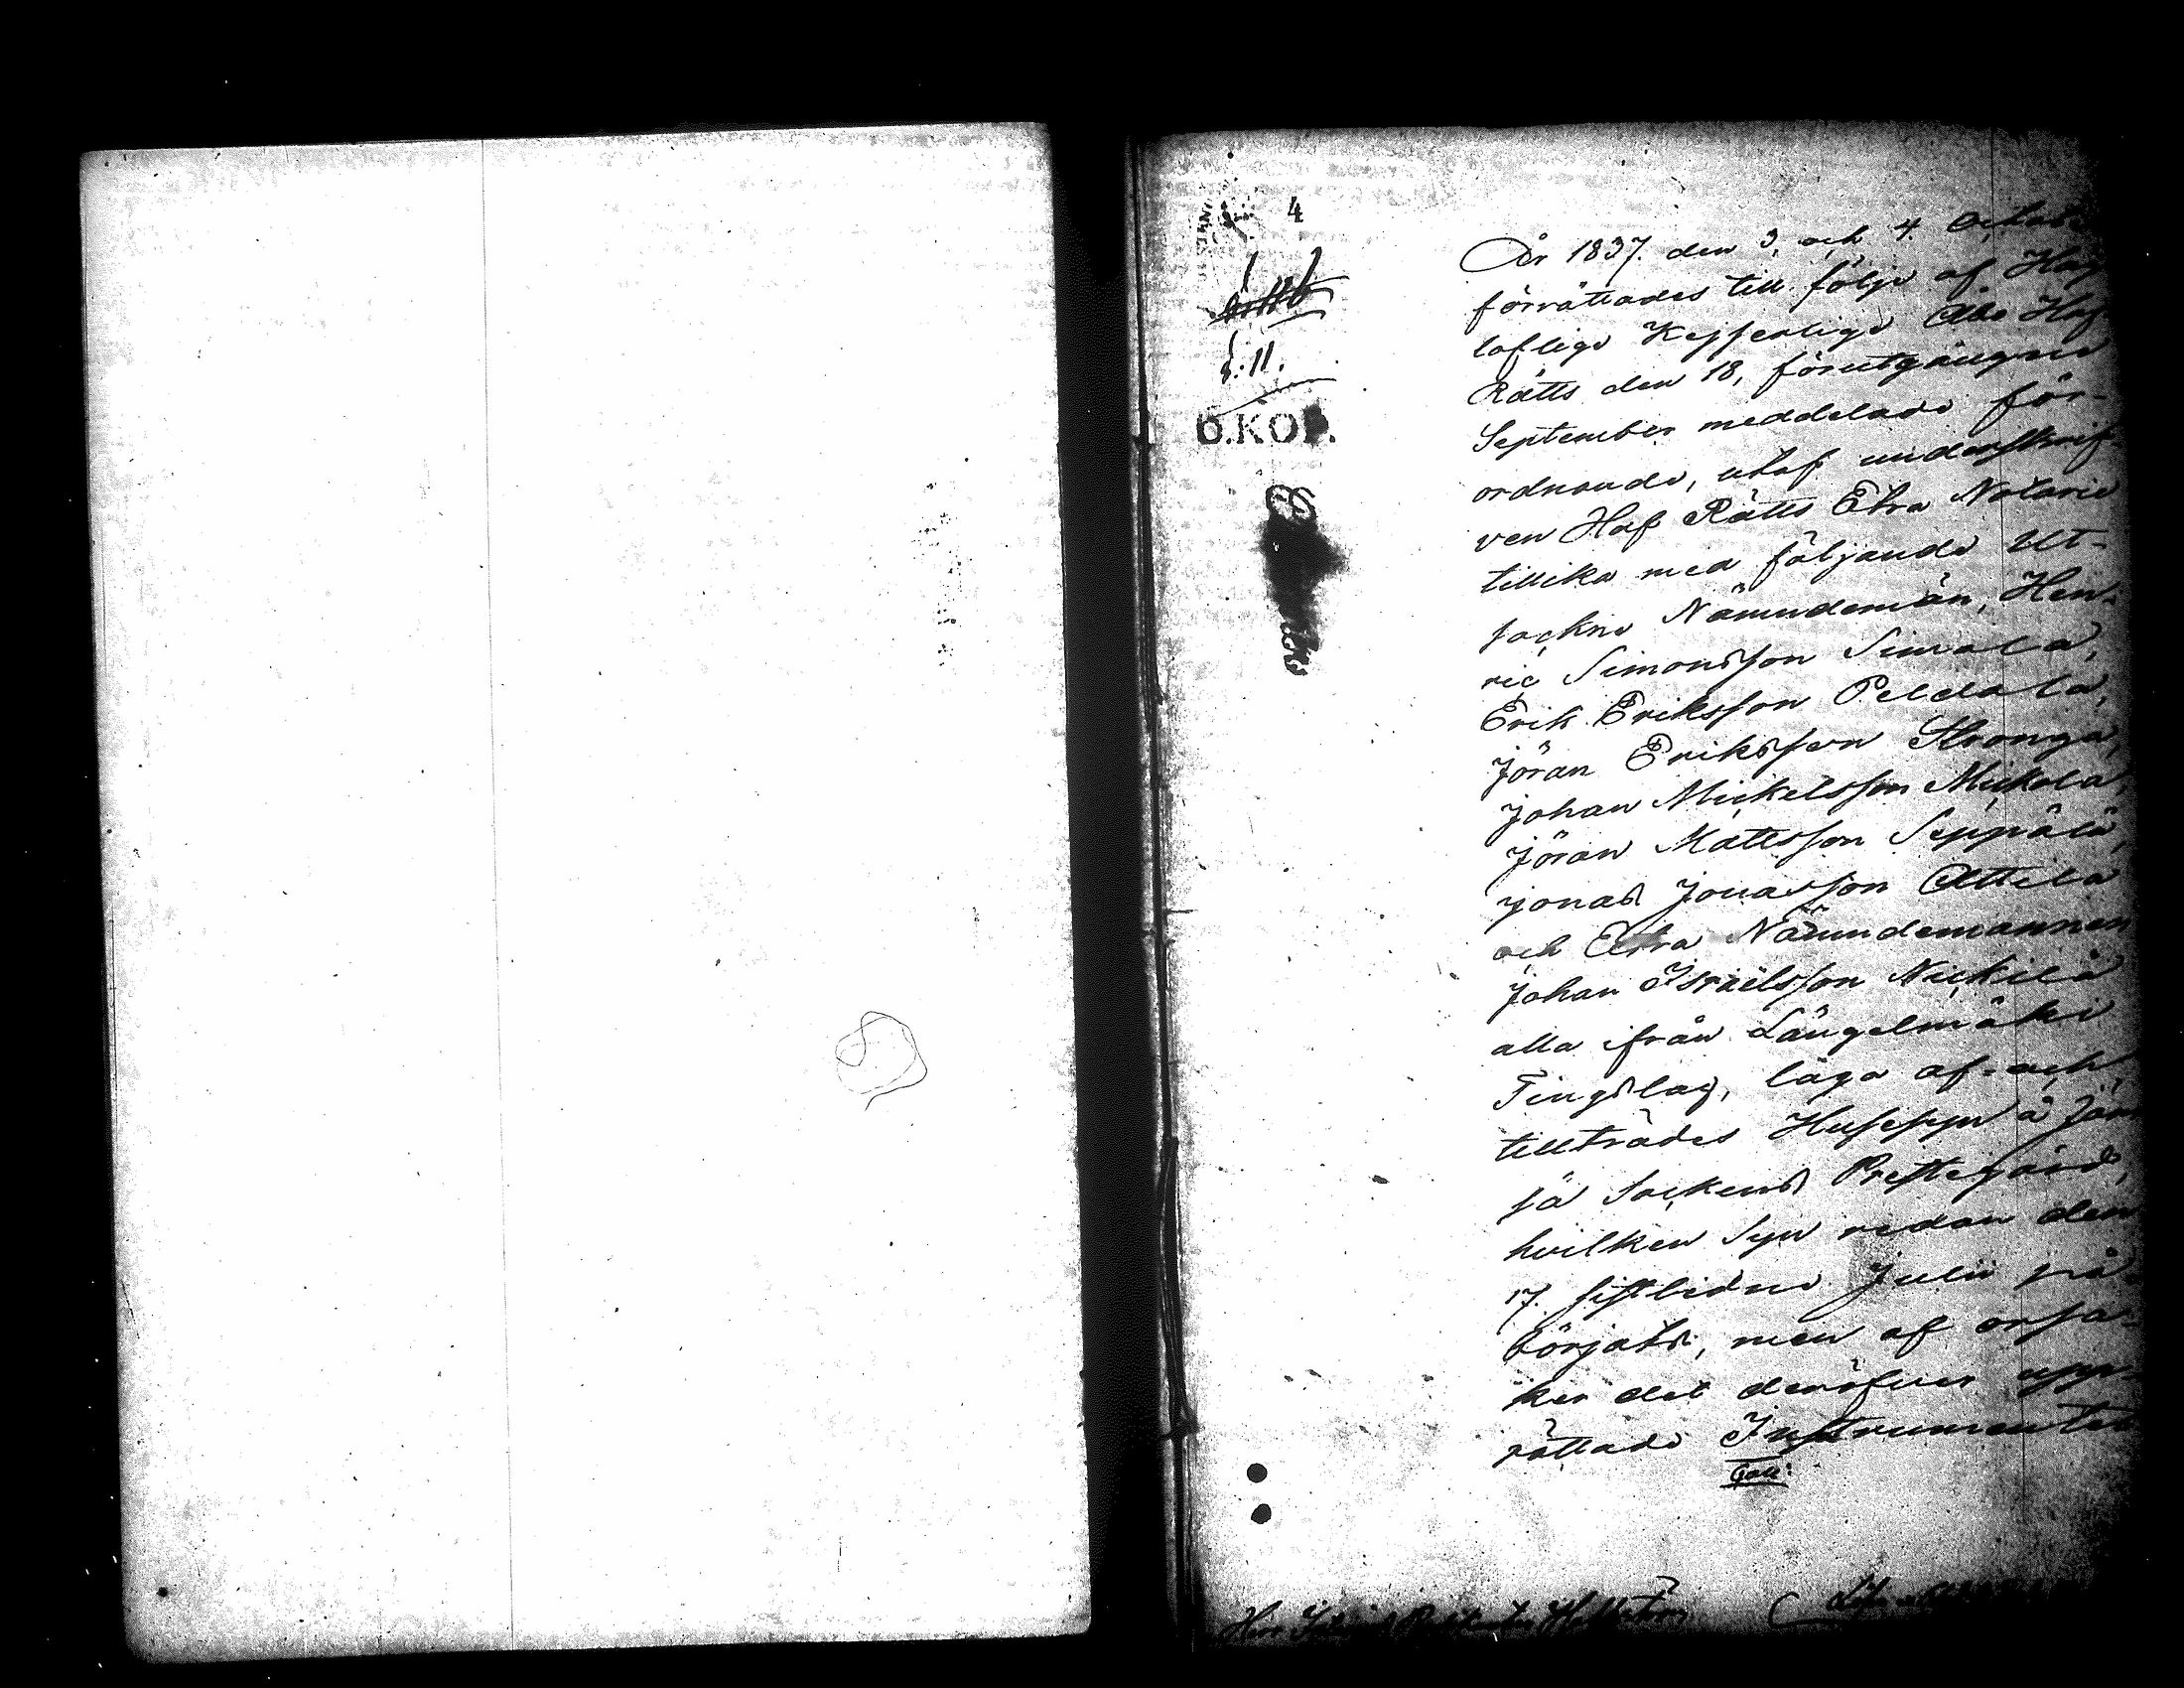 4
§. 11.
6.KOP.
År 1837. den 3, och 4. October
förrättades till följe af Hög
loflige Kejserlige Åbo Hof
Rätts den 18, förutgångne
September meddelade för-
ordnande, utaf underskrif
ven Hof Rätts Extra Notarie
tillika med följande Ut-
sockne Nämndemän, Hen-
ric Simonsson Simola,
Erik Eriksson Peldola,
Jöran Eriksson Skronga,
Johan Mickelsson Mickola,
Jöran Mattsson Seppälä,
Jonas Jonasson Attila
och Extra Nämndemannen
Johan Israelsson Nickilä
alla ifrån Längelmäki
Tingslag, laga af- och
tillträdes Husesyn å Jäm
sä Sockens Prestegård,
hvilken Syn redan den
17. sistledne Julii på
börjats, men af orsa-
ker det deröfver upp-
rättade Instrumentet
Herr